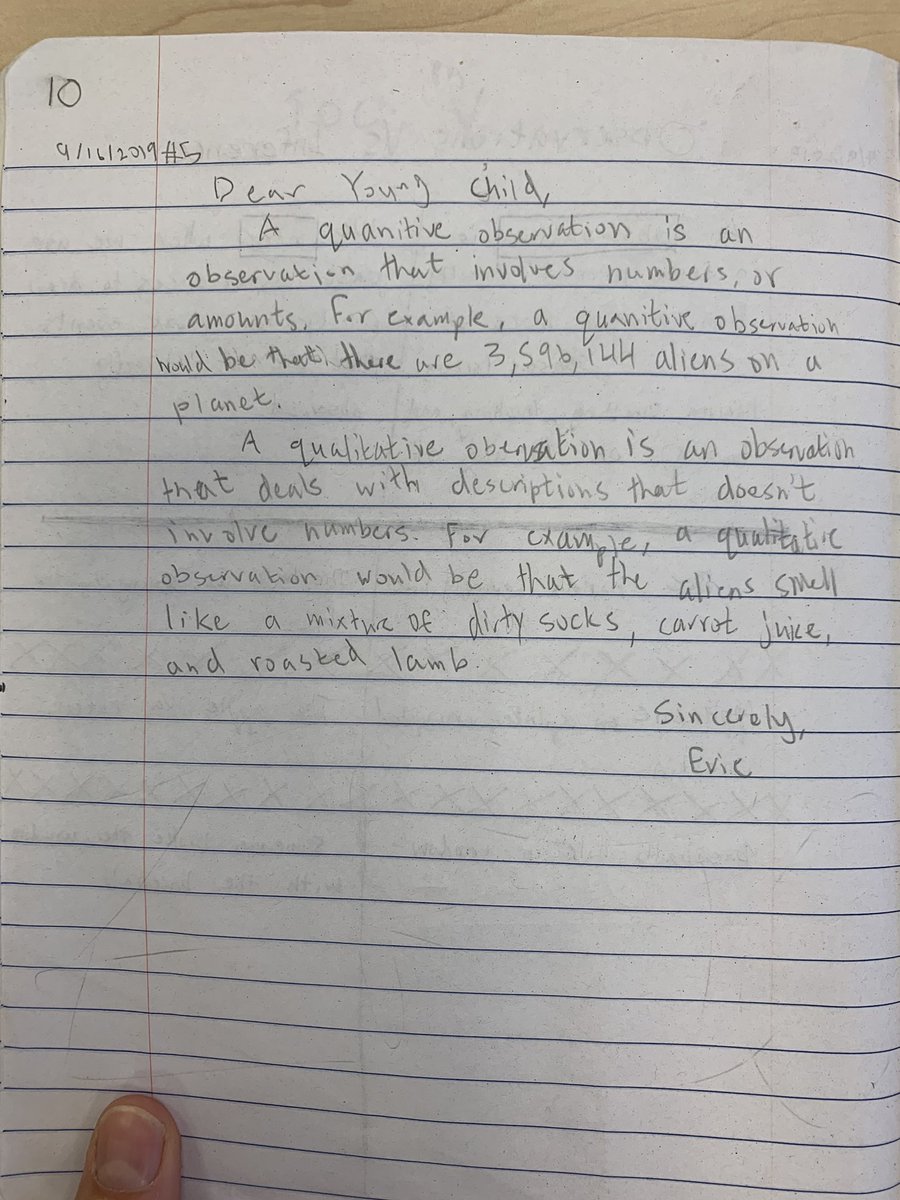 10
9/16/2019 #5
Dear Young Child,
A quanitive observation is an
observation that involves numbers, or
amounts. For example, a quanitive observation
would be that there are 3,596,144 aliens on a
planet.
A qualitative obersvation is an observation
that deals with descriptions that doesn't
involve numbers. For example, a qualitative
observation would be that the aliens smell
like a mixture of dirty socks, carrot juice,
and roasted lamb.
Sincerely,
Eric